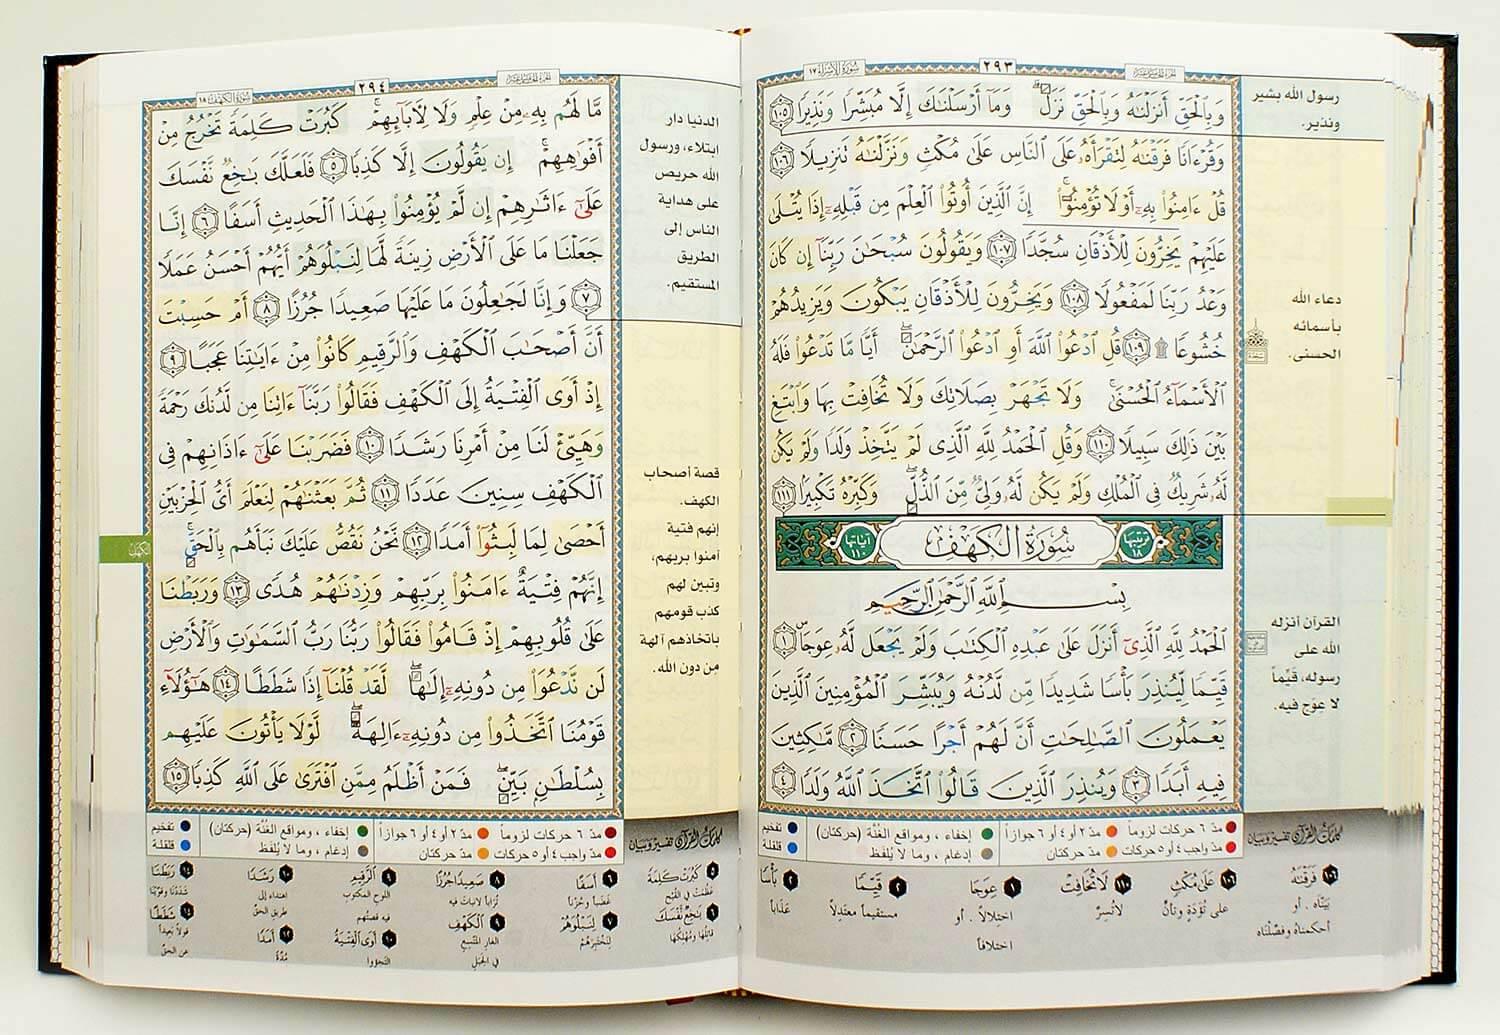 سُورَةُ الإِسْرَاء ١٧
٢٩٣
وَبِالْحَقِّ أَنزَلْنَٰهُ وَبِالْحَقِّ نَزَلَ وَمَآ أَرْسَلْنَٰكَ إِلَّا مُبَشِّرًا وَنَذِيرًا ١٠٥
وَقُرْءَانًا فَرَقْنَٰهُ لِتَقْرَأَهُۥ عَلَى النَّاسِ عَلَىٰ مُكْثٍ وَنَزَّلْنَٰهُ تَنزِيلًا ١٠٦
قُلْ ءَامِنُوا۟ بِهِۦٓ أَوْ لَا تُؤْمِنُوٓا۟ إِنَّ الَّذِينَ أُوتُوا۟ الْعِلْمَ مِن قَبْلِهِۦٓ إِذَا يُتْلَىٰ
عَلَيْهِمْ يَخِرُّونَ لِلْأَذْقَانِ سُجَّدًا ١٠٧ وَيَقُولُونَ سُبْحَٰنَ رَبِّنَآ إِن كَانَ
وَعْدُ رَبِّنَا لَمَفْعُولًا ١٠٨ وَيَخِرُّونَ لِلْأَذْقَانِ يَبْكُونَ وَيَزِيدُهُمْ
خُشُوعًا ۩ ١٠٩ قُلِ ادْعُوا۟ اللَّهَ أَوِ ادْعُوا۟ الرَّحْمَٰنَ أَيًّا مَّا تَدْعُوا۟ فَلَهُ
الْأَسْمَآءُ الْحُسْنَىٰ وَلَا تَجْهَرْ بِصَلَاتِكَ وَلَا تُخَافِتْ بِهَا وَابْتَغِ
بَيْنَ ذَٰلِكَ سَبِيلًا ١١٠ وَقُلِ الْحَمْدُ لِلَّهِ الَّذِى لَمْ يَتَّخِذْ وَلَدًا وَلَمْ يَكُن
لَّهُۥ شَرِيكٌ فِى الْمُلْكِ وَلَمْ يَكُن لَّهُۥ وَلِىٌّ مِّنَ الذُّلِّ وَكَبِّرْهُ تَكْبِيرًا ١١١
ترتيبها ١٨ سُورَةُ الْكَهْفِ آياتها ١١٠
بِسْمِ اللَّهِ الرَّحْمَٰنِ الرَّحِيمِ
الْحَمْدُ لِلَّهِ الَّذِىٓ أَنزَلَ عَلَىٰ عَبْدِهِ الْكِتَٰبَ وَلَمْ يَجْعَل لَّهُۥ عِوَجَا ١
قَيِّمًا لِّيُنذِرَ بَأْسًا شَدِيدًا مِّن لَّدُنْهُ وَيُبَشِّرَ الْمُؤْمِنِينَ الَّذِينَ
يَعْمَلُونَ الصَّٰلِحَٰتِ أَنَّ لَهُمْ أَجْرًا حَسَنًا ٢ مَّٰكِثِينَ
فِيهِ أَبَدًا ٣ وَيُنذِرَ الَّذِينَ قَالُوا۟ اتَّخَذَ اللَّهُ وَلَدًا ٤
رسول الله بشير
ونذير.
دعاء الله
بأسمائه
الحسنى.
القرآن أنزله
الله على
رسوله، قَيِّماً
لا عِوَج فيه.
مدّ ٦ حركات لزوماً مدّ ٢ أو ٤ أو ٦ جوازاً إخفاء ، ومواقع الغُنَّة (حركتان) تفخيم
مدّ واجب ٤ أو ٥ حركات مدّ حركتان إدغام ، وما لا يُلفَظ قلقلة
كلمات القرآن تفسير وبيان
١٠٦ فَرَقْنَٰهُ
بَيَّنّاه . أو
أحكمناه وفصَّلْناه
١٠٦ عَلَىٰ مُكْثٍ
على تُؤَدَةٍ وتأنٍّ
١١٠ لَا تُخَافِتْ
لا تُسِرَّ
١ عِوَجًا
اختلالاً . أو
اختلافاً
٢ قَيِّمًا
مستقيماً معتدِلاً
٢ بَأْسًا
عَذَاباً
سُورَةُ الْكَهْفِ ١٨
٢٩٤
مَّا لَهُم بِهِۦ مِنْ عِلْمٍ وَلَا لِآبَآئِهِمْ كَبُرَتْ كَلِمَةً تَخْرُجُ مِنْ
أَفْوَٰهِهِمْ إِن يَقُولُونَ إِلَّا كَذِبًا ٥ فَلَعَلَّكَ بَٰخِعٌ نَّفْسَكَ
عَلَىٰٓ ءَاثَٰرِهِمْ إِن لَّمْ يُؤْمِنُوا۟ بِهَٰذَا الْحَدِيثِ أَسَفًا ٦ إِنَّا
جَعَلْنَا مَا عَلَى الْأَرْضِ زِينَةً لَّهَا لِنَبْلُوَهُمْ أَيُّهُمْ أَحْسَنُ عَمَلًا
٧ وَإِنَّا لَجَٰعِلُونَ مَا عَلَيْهَا صَعِيدًا جُرُزًا ٨ أَمْ حَسِبْتَ
أَنَّ أَصْحَٰبَ الْكَهْفِ وَالرَّقِيمِ كَانُوا۟ مِنْ ءَايَٰتِنَا عَجَبًا ٩
إِذْ أَوَى الْفِتْيَةُ إِلَى الْكَهْفِ فَقَالُوا۟ رَبَّنَآ ءَاتِنَا مِن لَّدُنكَ رَحْمَةً
وَهَيِّئْ لَنَا مِنْ أَمْرِنَا رَشَدًا ١٠ فَضَرَبْنَا عَلَىٰٓ ءَاذَانِهِمْ فِى
الْكَهْفِ سِنِينَ عَدَدًا ١١ ثُمَّ بَعَثْنَٰهُمْ لِنَعْلَمَ أَىُّ الْحِزْبَيْنِ
أَحْصَىٰ لِمَا لَبِثُوٓا۟ أَمَدًا ١٢ نَّحْنُ نَقُصُّ عَلَيْكَ نَبَأَهُم بِالْحَقِّ
إِنَّهُمْ فِتْيَةٌ ءَامَنُوا۟ بِرَبِّهِمْ وَزِدْنَٰهُمْ هُدًى ١٣ وَرَبَطْنَا
عَلَىٰ قُلُوبِهِمْ إِذْ قَامُوا۟ فَقَالُوا۟ رَبُّنَا رَبُّ السَّمَٰوَٰتِ وَالْأَرْضِ
لَن نَّدْعُوَا۟ مِن دُونِهِۦٓ إِلَٰهًا لَّقَدْ قُلْنَآ إِذًا شَطَطًا ١٤ هَٰٓؤُلَآءِ
قَوْمُنَا اتَّخَذُوا۟ مِن دُونِهِۦٓ ءَالِهَةً لَّوْلَا يَأْتُونَ عَلَيْهِم
بِسُلْطَٰنٍ بَيِّنٍ فَمَنْ أَظْلَمُ مِمَّنِ افْتَرَىٰ عَلَى اللَّهِ كَذِبًا ١٥
الدنيا دار
ابتلاء، ورسول
الله حريص
على هداية
الناس إلى
الطريق
المستقيم.
قصة أصحاب
الكهف.
إنهم فتية
آمنوا بربهم،
وتبين لهم
كذب قومهم
باتخاذهم آلهة
مِن دون الله.
الكهف
مدّ ٦ حركات لزوماً مدّ ٢ أو ٤ أو ٦ جوازاً إخفاء ، ومواقع الغُنَّة (حركتان) تفخيم
مدّ واجب ٤ أو ٥ حركات مدّ حركتان إدغام ، وما لا يُلفَظ قلقلة
كلمات القرآن تفسير وبيان
٥ كَبُرَتْ كَلِمَةً
عَظُمَتْ في القُبْح
٦ بَٰخِعٌ نَّفْسَكَ
قاتِلُها ومُهلِكُها
٦ أَسَفًا
غَضَباً وحُزْناً
٧ لِنَبْلُوَهُمْ
لِنَخْتَبِرَهُمْ
٨ صَعِيدًا جُرُزًا
تُراباً لا نبات فيه
٩ الْكَهْفِ
الغارِ المتَّسِع
في الجَبَل
٩ الرَّقِيمِ
اللوحِ المكتوبِ
فيه قصتُهم
١٠ أَوَى الْفِتْيَةُ
التجؤوا
١٠ رَشَدًا
اهتداء إلى
طريق الحقّ
١٢ أَمَدًا
مُدَّةً
١٤ رَبَطْنَا
شَدَدْنا وقوَّيْنا
١٤ شَطَطًا
قولاً بعيداً
عن الحقّ